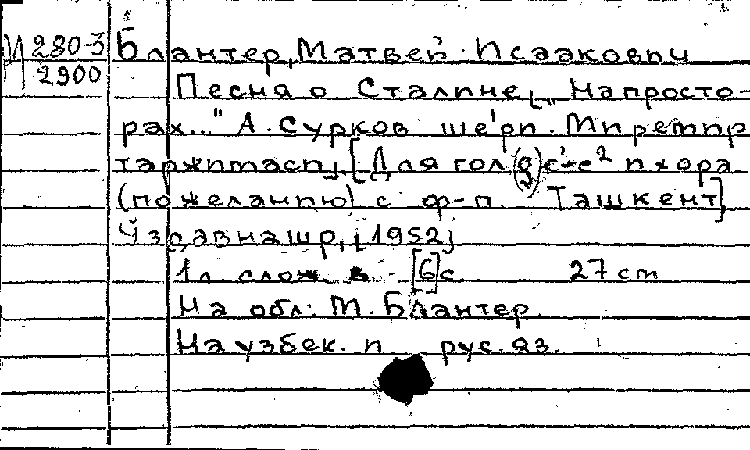 И 280-3
2900
Блантер, Матвей Исаакович
Песня о Сталине [„На просто-
рах..." А. Сурков ше'ри. М претпр
таржимаси]. [Для гол (а) с¹-с² и хора
(по желанию) с ф-п. Ташкент],
Ўздавнашр, [1952]
1 л слож в [6] с 27 cm
На обл: М. Блантер.
На узбек. и рус. яз.